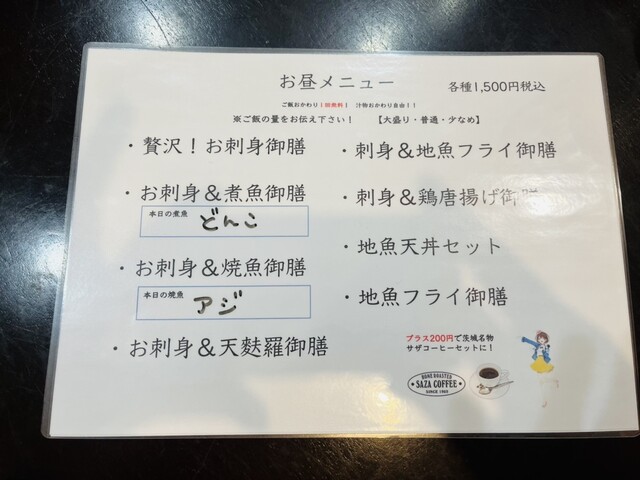 お昼メニュー
各種1,500円税込
ご飯おかわり1回無料! 汁物おかわり自由!!
※ご飯の量をお伝え下さい! 【大盛り・普通・少なめ】
・贅沢!お刺身御膳
・お刺身&煮魚御膳
本日の煮魚
どんこ
・お刺身&焼魚御膳
本日の焼魚
アジ
・お刺身&天麩羅御膳
・刺身&地魚フライ御膳
・刺身&鶏唐揚げ御膳
・地魚天丼セット
・地魚フライ御膳
プラス200円で茨城名物
サザコーヒーセットに!
HOME ROASTED
SAZA COFFEE
SINCE 1969